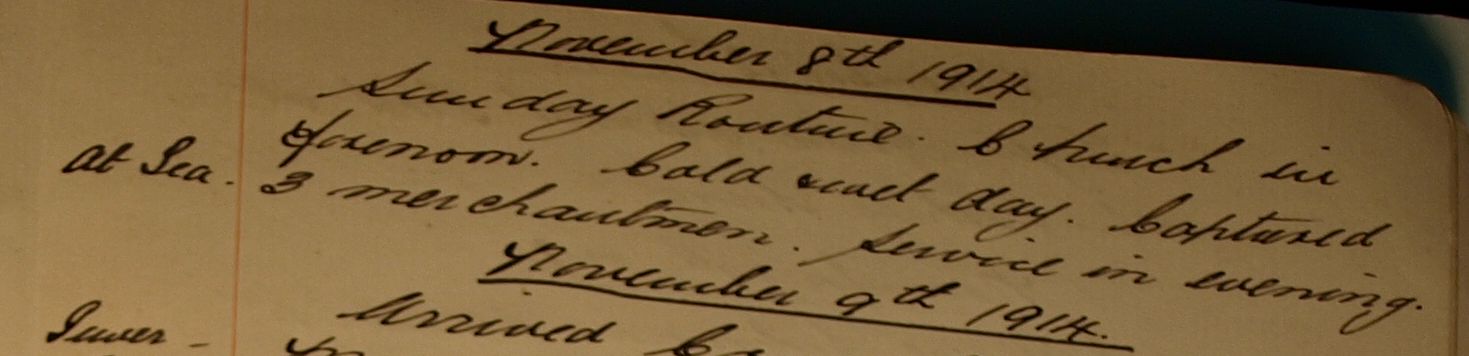 November 8th 1914
Sunday Routine. Church in
forenoon. Cold & wet day. Captured
At Sea. 3 merchantmen. Service in evening.
November 9th 1914.
Arrived
Inver-